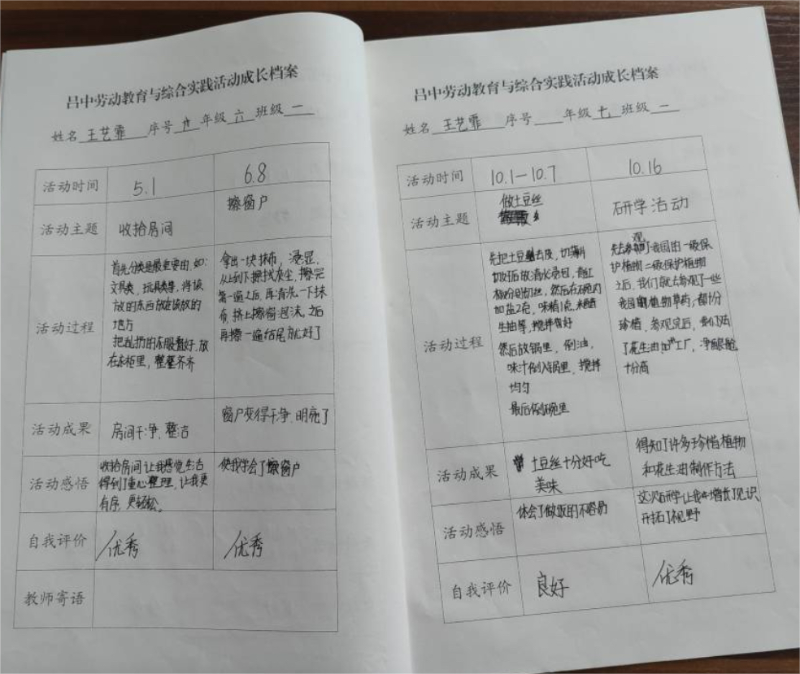 吕中劳动教育与综合实践活动成长档案
姓名 王艺霏 序号 年级 六 班级 一
活动时间 5.1 6.8
活动主题 收拾房间 擦窗户
活动过程
首先分类是最重要的,如:
文具类、玩具类等,将该
放的东西放在该放的
地方
放
在柜里,整整齐齐
拿出一块抹布,浸湿,
从上到下擦找灰尘,擦完
第一遍之后,再清洗一下抹
布,挤上擦窗泡沫,之后
再擦一遍结尾就好了
活动成果 房间干净、整洁 窗户变得干净、明亮了
活动感悟
收拾房间让我感觉生活
得到了重心整理,让我更
有序,更轻松。
使我学会了擦窗户
自我评价 优秀 优秀
教师寄语
吕中劳动教育与综合实践活动成长档案
姓名 王艺霏 序号 年级 七 班级 一
活动时间 10.1—10.7 10.16
活动主题 做土豆丝 研学活动
活动过程
先把土豆去皮,切薄片
切好后放清水浸泡,
然后在碗内
加盐2克,味精1克,
生抽等,搅拌备好
然后放锅里,倒油,
味汁倒入锅里,搅拌
均匀
最后倒碗里
先去参观了我国的一级保
护植物二级保护植物
之后,我们就去参观了一些
植物草药,都十分
珍稀,参观完后,我们又去
了花生油加工厂,
十分高
活动成果
土豆丝十分好吃
美味
得知了许多珍惜植物
和花生油制作方法
活动感悟
体会了做饭的不容易
这次研学让我增长了见识
开拓了视野
自我评价 良好 优秀